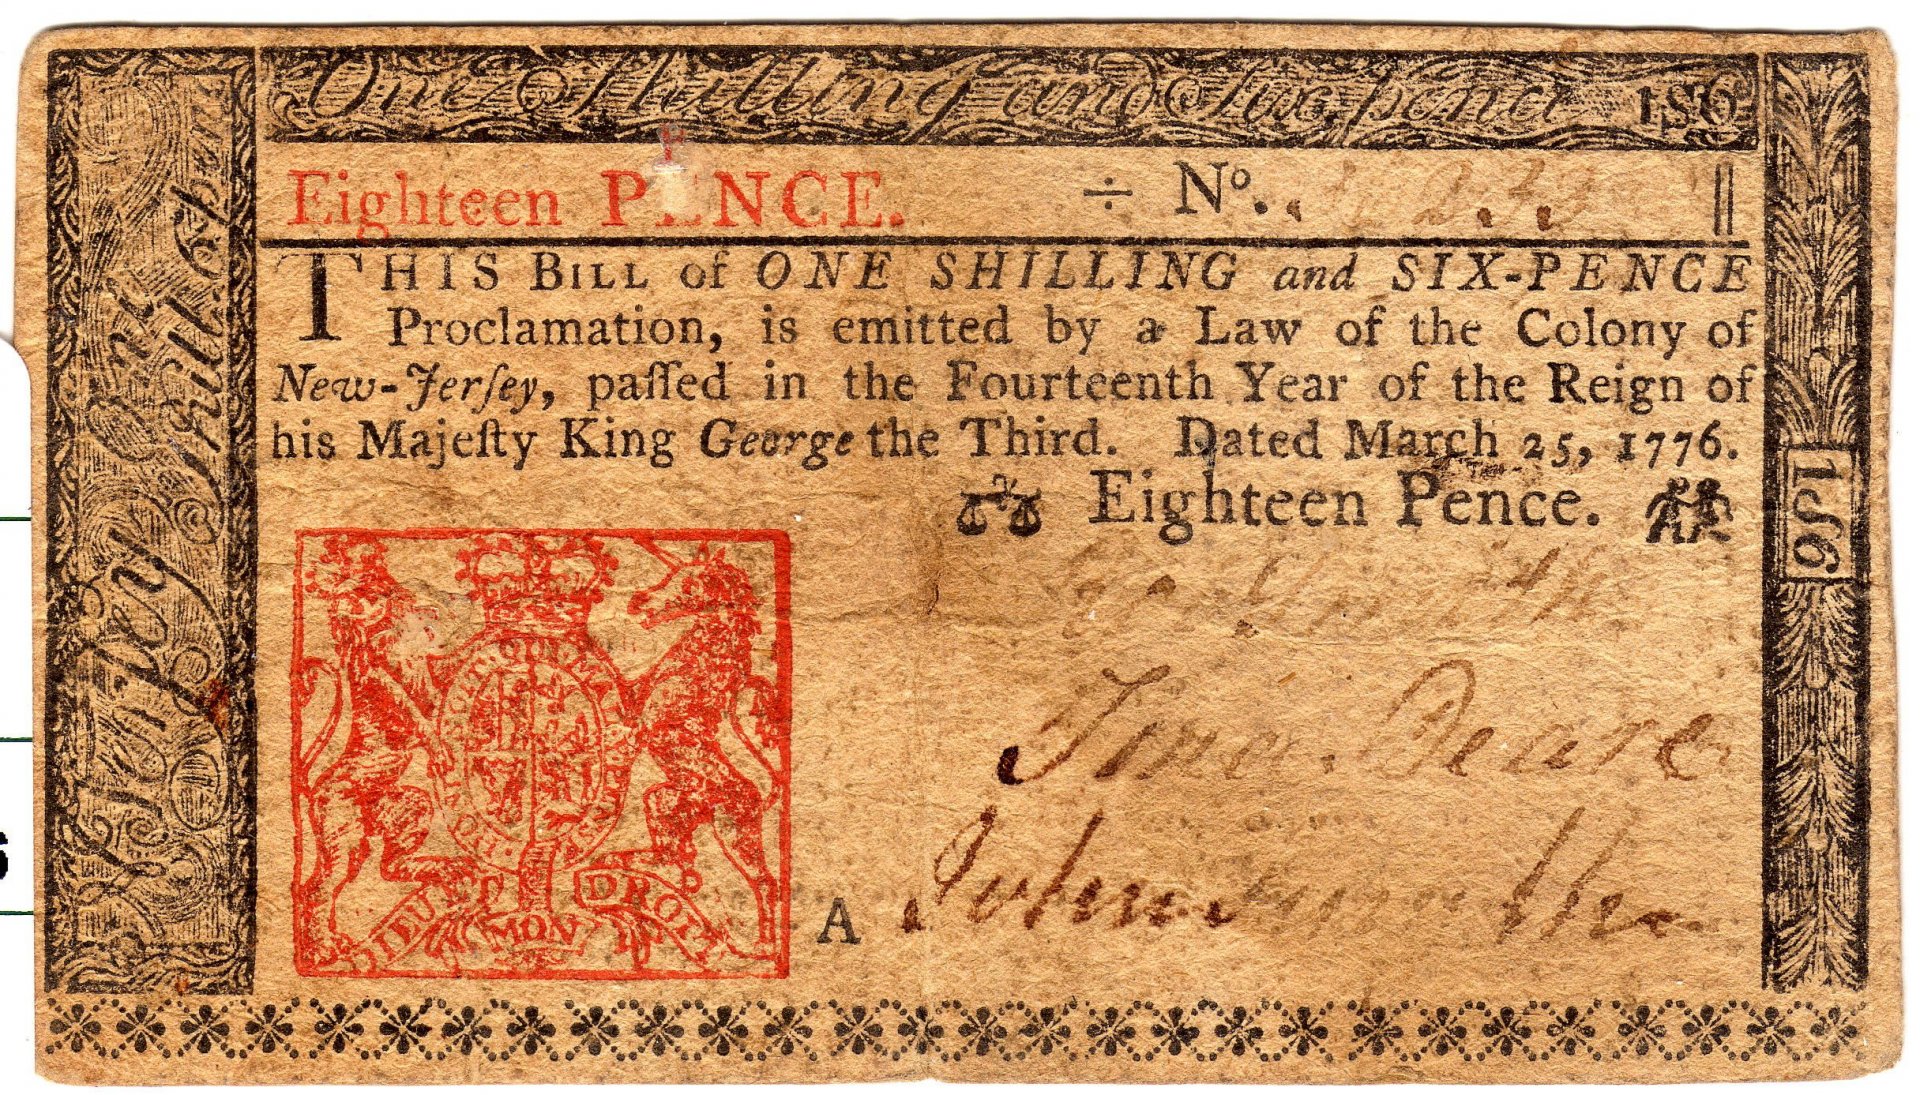 One Shilling and Six pence 1S6
Eighteen PENCE. ÷ No.
THIS BILL of ONE SHILLING and SIX-PENCE
Proclamation, is emitted by a Law of the Colony of
New-Jerſey, paſſed in the Fourteenth Year of the Reign of
his Majeſty King George the Third. Dated March 25, 1776.
Eighteen Pence.
John Smith
Jona. Deare
John
A
DIEU ET MON DROIT
1S6